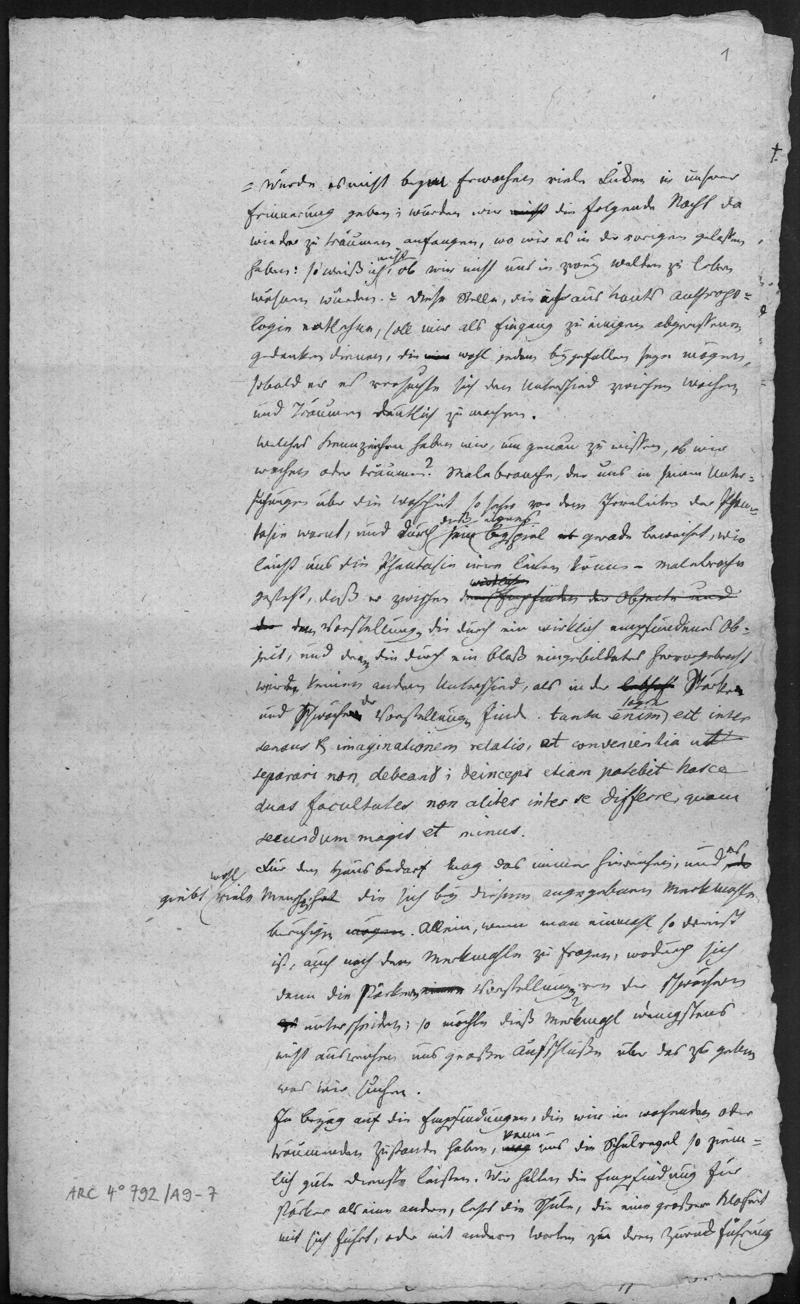 1
†
= Würde es nicht beym Erwachen viele Lücken in unserer
Erinnerung geben; würden wir nicht die folgende Nacht da
wieder zu träumen anfangen, wo wir es in der vorigen gelassen
haben: so weiß ich nicht, ob wir nicht uns in zwey Welten zu leben
wähnen würden. = Diese Stelle, die ich aus Kants Anthropo=
logie entlehne, soll mir als Eingang zu einigen abgerissenen
Gedanken dienen, die wohl jedem beygefallen seyn mögen,
sobald er es versuchte sich den Unterschied zwischen Wachen
und Träumen deutlich zu machen.
Welches Kennzeichen haben wir, um genau zu wissen, ob wir
wachen oder träumen? Malebranche, der uns in seinen Unter=
suchungen über die Wahrheit so sehr vor den der Phan=
tasie warnt, und durch sein dieß eignes Beyspiel es gerade beweißt, wie
leicht uns die Phantasie irre leiten könne – Malebranche
gesteht, daß er zwischen dem wirklichen Empfinden der Objecte und
der den Vorstellungen die durch ein wirklich empfundenes Ob=
jeit, und denen die durch ein bloß eingebildetes hervorgebracht
werden keinen andern Unterschied, als in der Stärke
und Schwäche der Vorstellungen finde. tanta enim est inter
sensus & imaginationem relatio, et convenientia ut
separari non debeant; deinceps etiam patebit hasce
duas facultates non aliter inter se differre, quam
secundum magis et minus.
Für den Hausbedarf mag das immer hinreichen, und es
giebt wohl viele Menschen die sich bey diesem angegebenen Merkmahle
beruhigen mögen. Allein, wenn man einmahl so dreist
ist, auch nach dem Merkmahle zu fragen, wodurch sich
denn die stärkere Vorstellung von der schwächern
zu unterscheiden; so möchte dieß Merkmahl wenigstens
nicht ausreichen uns große Aufschlüße über das zu geben
was wir suchen.
In bezug auf die Empfindungen, die wir im wachenden oder
träumenden Zustande haben, mag kann uns die Schulregel so ziem=
lich gute Dienste leisten. Wir halten die Empfindung für
stärker als eine andere, lehrt die Schule, die eine größere Klarheit
mit sich führt, oder mit andern Worten zu deren Zurückführung
ARC 4° 792/A9-7